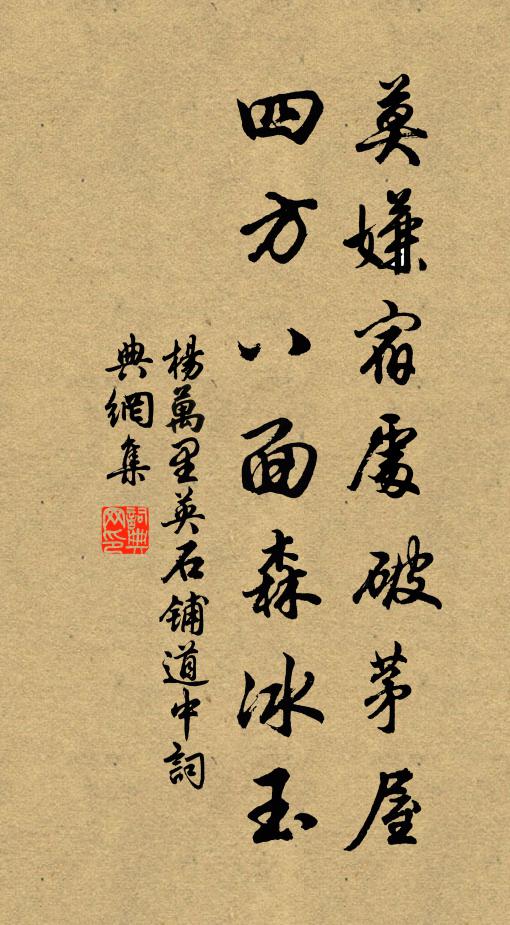 莫嫌宿處破茅屋
四方八面森冰玉
楊萬里英石鋪道中詞
典網集
詞典網印